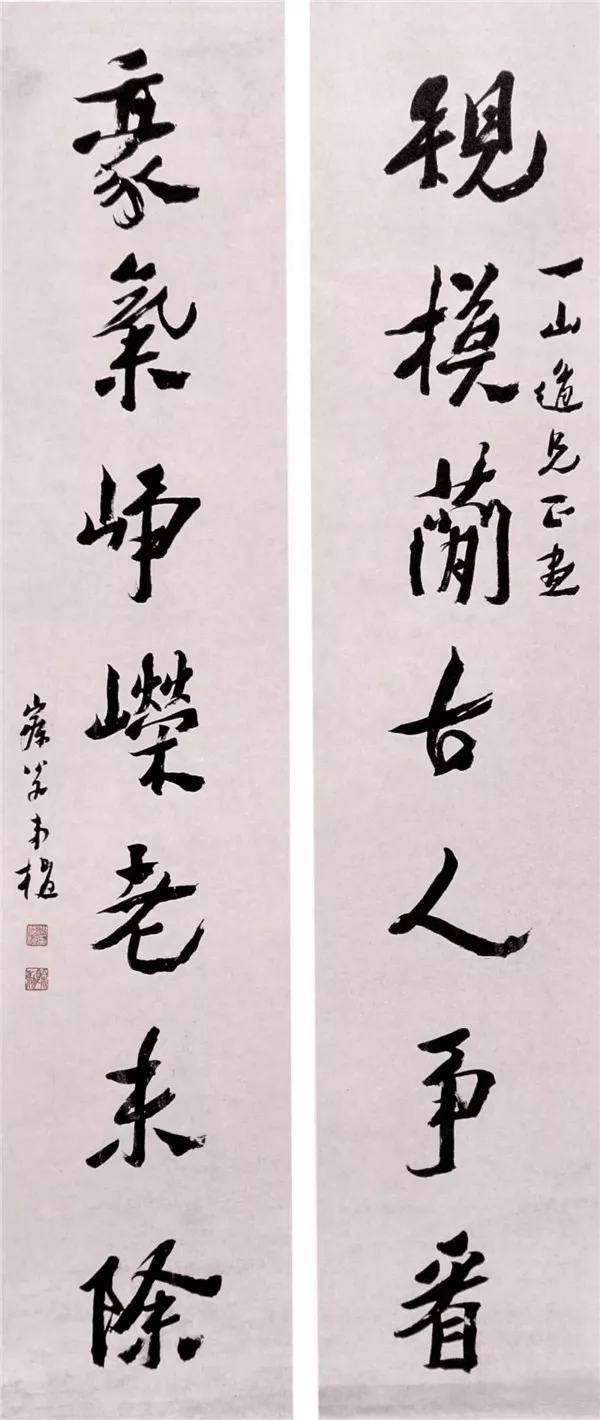 一山道兄正
規模簡古人爭看
豪氣崢嶸老未除
寐叟弟植